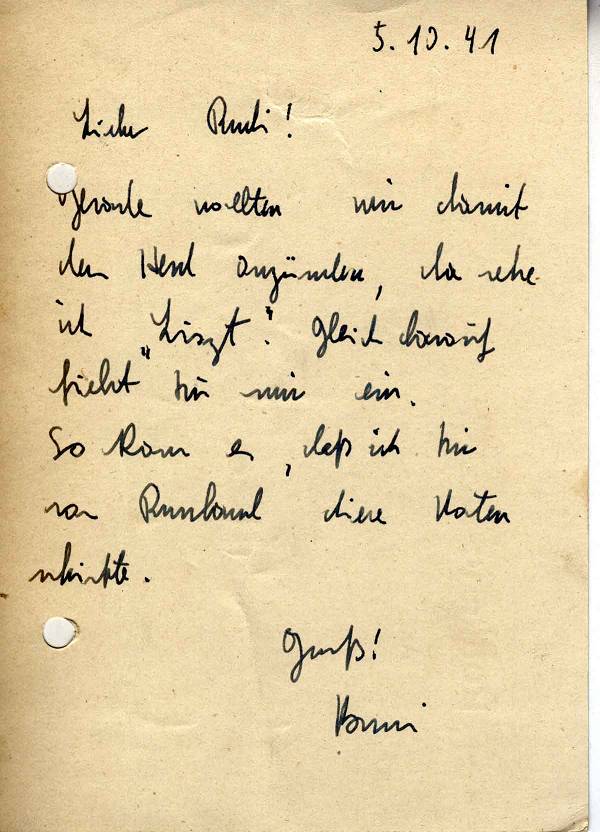 5.10.41
Lieber Rudi!
Gerade wollten wir damit
den Herd anzünden, da sehe
ich „Liszt". Gleich darauf
fielst Du mir ein.
So kam es, daß ich Dir
von Russland diese Noten
schickte.
Gruß!